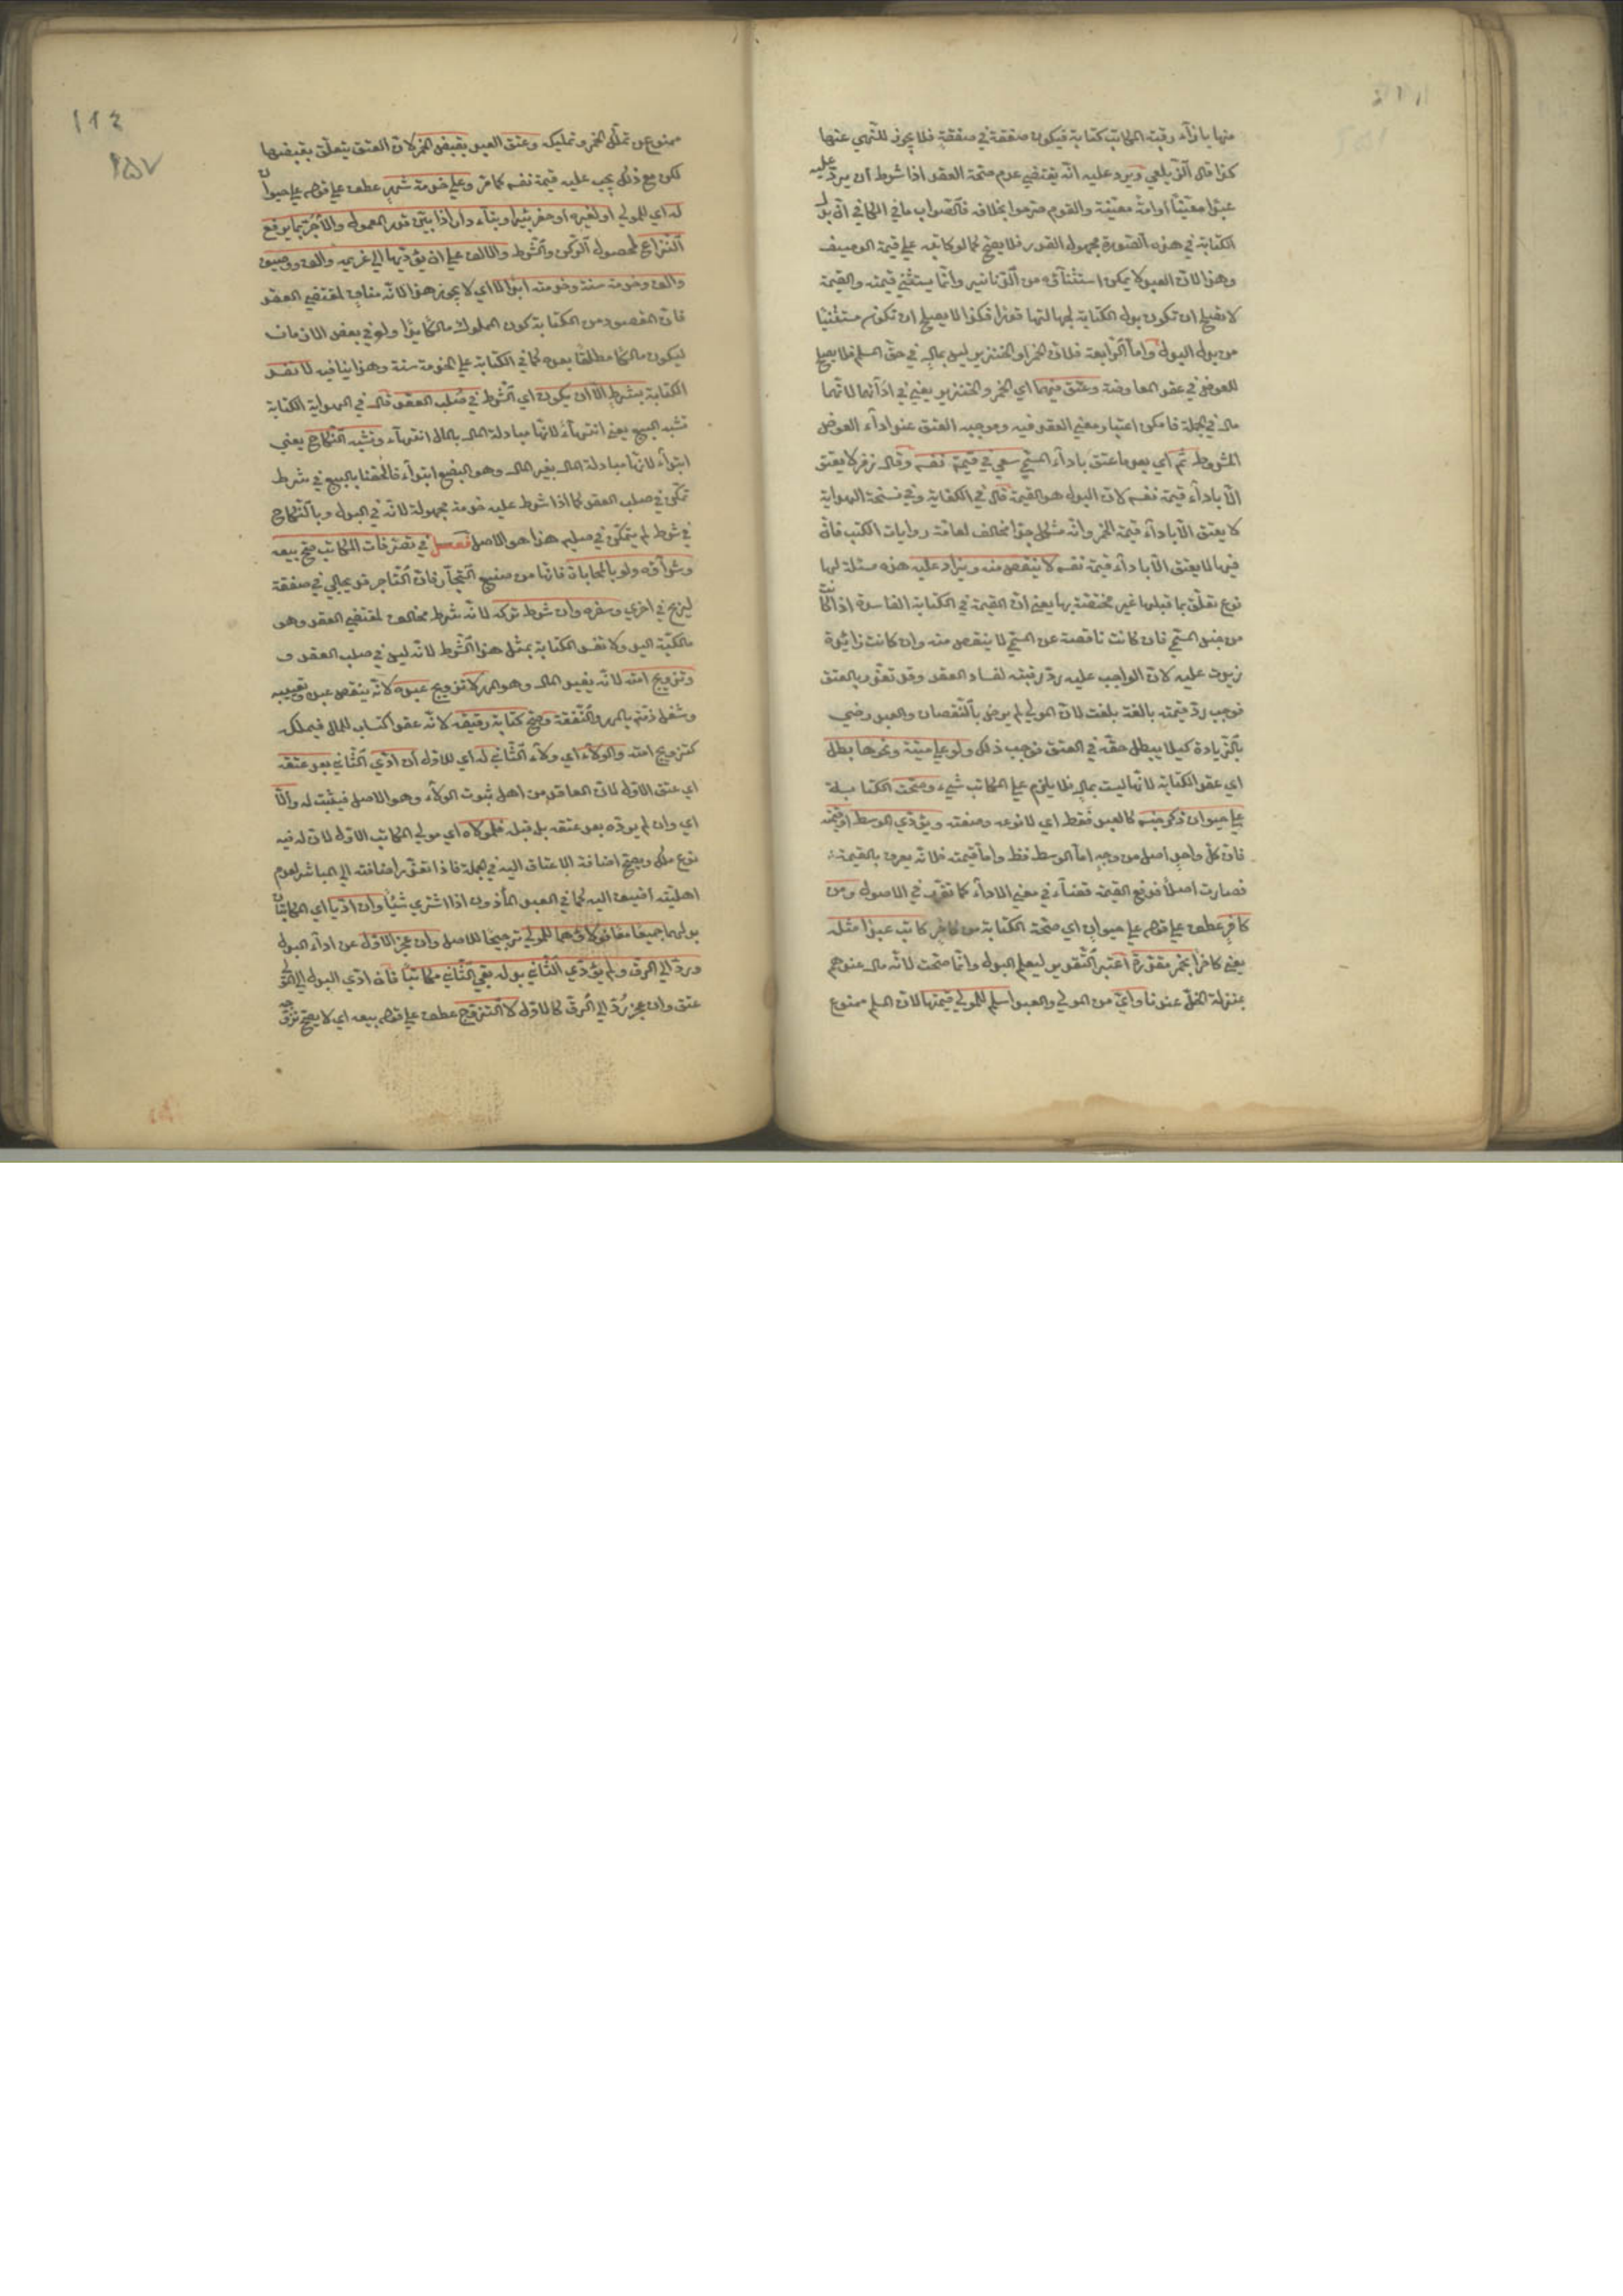 منها بازآء رقبة المكاتب كتابة فيكون صفقة في صفقة فلا يجوز للنهي عنها
كذا قال الزيلعي ويرد عليه انه يقتضي عدم صحة العقد اذا شرط ان يرد عليه
عبدا معينا او امة معينة والقوم صرحوا بخلافه فالصواب ما في الكافي ان بدل
الكتابة في هذه الصورة مجهول القدر فلا يصح كما لو كاتبه على قيمة الوصيف
وهذا لان العبد لا يمكن استثناؤه من الدنانير وانما يستثنى قيمته والقيمة
لا تصلح ان تكون بدل الكتابة لجهالتها قدرا فكذا لا يصلح ان تكون مستثنيا
من بدل البدل واما الرابعة فلان الخمر او الخنزير ليس بمال في حق المسلم فلا يصلح
للعوض في عقد المعاوضة وعتق فيهما اي الخمر والخنزير يعني في ادآئهما لانهما
مال في الجملة فامكن اعتبار معنى العقد فيه وموجبه العتق عند ادآء العوض
المشروط ثم اي بعد ما عتق بادآء المسمى سعى في قيمة نفسه وقال زفر لا يعتق
الا بادآء قيمة نفسه لان البدل هو القيمة قال في الكفاية وفي نسخة الهداية
لا يعتق الا بادآء قيمة الخمر وانه مشكل جدا مخالف لعامة روايات الكتب فان
فيها لا يعتق الا بادآء قيمة نفسه لا ينقص منه ويزاد عليه هذه مسئلة لها
نوع تعلق بما قبلها غير مختصة بها يعني ان القيمة في الكتابة الفاسدة اذا كانت
من جنس المسمى فان كانت ناقصة عن المسمى لا ينقص منه وان كانت زائدة
زيدت عليه لان الواجب عليه رد رقبته لفساد العقد وقد تعذر بالعتق
فوجب رد قيمته بالغة بلغت لان المولى لم يرض بالنقصان والعبد رضي
بالزيادة كيلا يبطل حقه في العتق فوجب ذلك ولو على ميتة ونحوها بطل
اي عقد الكتابة لانها ليست بمال فلا يلزم على المكاتب شيء وصحت الكتابة
على حيوان ذكر جنسه كالعبد فقط اي لا نوعه وصفته ويؤدي الوسط او قيمته
فان كل واحد اصل من وجه اما الوسط فظ واما قيمته فلانه يعرف بالقيمة
فصارت اصلا فدفع القيمة قضاء في معنى الادآء كما تقرر في الاصول ومن
كافر عطف على قوله على حيوان اي صحت الكتابة من كافر كاتب عبدا مثله
يعني كافرا بخمر مقدرة اعتبر التقدير ليعلم البدل وانما صحت لانه مال عندهم
بمنزلة الخل عندنا واي من المولى والعبد اسلم للمولى قيمتها لان المسلم ممنوع
١١٤
٢٥٧
ممنوع من تملك الخمر وتمليكه وعتق العبد بقبض الخمر لان العتق يتعلق بقبضها
لكن مع ذلك يجب عليه قيمة نفسه كما مر وعلى خدمة شهر عطف على قوله على حيوان
له اي للمولى او لغيره او حفر بئر او بناء دار اذا بين قدر المعمول والآجر بما يرفع
النزاع لحصول الركن والشرط والالف على ان يؤديها الى غريمه والف ووصيف
والف وخدمة سنة وخدمته ابدا لا اي لا يجوز هذا لانه مناف لمقتضى العقد
فان المقصود من الكتابة كون المملوك مالكا يدا ولو في بعض الازمان
ليكون مالكا مطلقا بعده كما في الكتابة على الخدمة سنة وهذا ينافيه لا تفسد
الكتابة بشرط الا ان يكون اي الشرط في صلب العقد قال في الهداية الكتابة
تشبه البيع يعني انتهاء لانها مبادلة المال بالمال انتهآء وتشبه النكاح يعني
ابتدآء لانها مبادلة المال بغير المال وهو البضع ابتدآء فالحقنا بالبيع في شرط
تمكن في صلب العقد كما اذا شرط عليه خدمة مجهولة لانه في البدل وبالنكاح
في شرط لم يتمكن في صلبه هذا هو الاصل فصل في تصرفات المكاتب صح بيعه
وشرآؤه ولو بالمحاباة فانها من صنيع التجار فان التاجر قد يحابي في صفقة
ليربح في اخرى وسفره وان شرط تركه لانه شرط مخالف لمقتضى العقد وهو
مالكية اليد ولا تفسد الكتابة بمثل هذا الشرط لانه ليس في صلب العقد و
وتزويج امته لانه يفيد المال وهو المهر لا تزويج عبده لانه ينقص عبده وتعييبه
وشغل ذمته بالمهر والنفقة وصح كتابة رقيقه لانه عقد اكتساب للمال فيملكه
كتزويج امته والولاء اي ولاء الثاني له اي للاول ان ادى الثاني بعد عتقه
اي عتق الاول لان العاقد من اهل ثبوت الولآء وهو الاصل فيثبت له والا
اي وان لم يؤده بعد عتقه بل قبله فلمولاه اي مولى المكاتب الاول لان له فيه
نوع ملك ويصح اضافة الاعتاق اليه في الجملة فاذا تعذر اضافته الى المباشر لعدم
اهليته اضيف اليه كما في العبد المأذون اذا اشترى شيئا وان اديا اي المكاتبان
بدلهما جميعا معا فولاؤهما للمولى ترجيحا للاصل وان عجز الاول عن ادآء البدل
ورد الى الرق ولم يؤدي الثاني بدله بقي الثاني مكاتبا فان ادى البدل الى المولى
عتق وان عجز رد الى الرق كالاول لا التزوج عطف على قوله بيعه اي لا يصح تزوجه